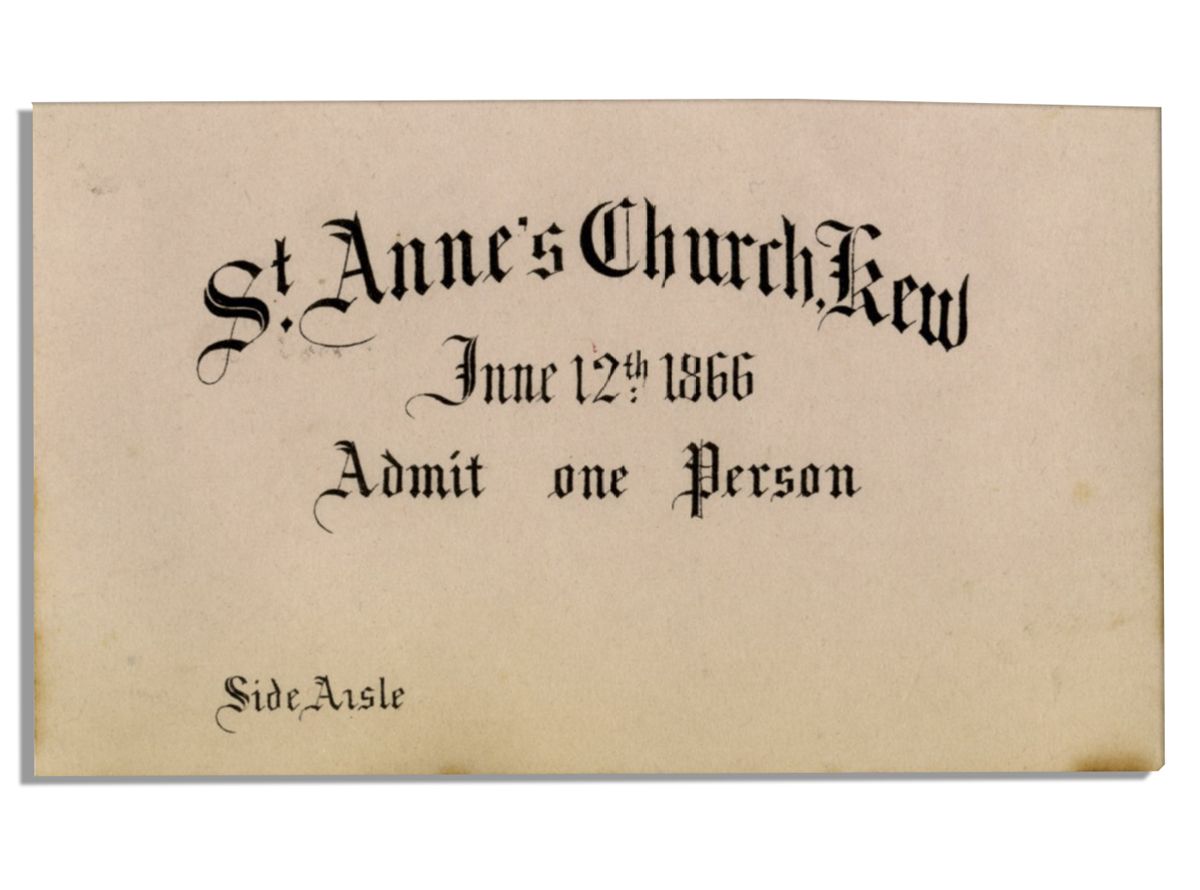 St. Anne's Church, Kew
June 12th 1866
Admit one Person
Side Aisle